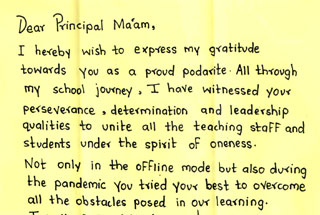 Dear Principal Ma'am,
I hereby wish to express my gratitude
towards you as a proud podarite. All through
my school journey, I have witnessed your
perseverance, determination and leadership
qualities to unite all the teaching staff and
students under the spirit of oneness.
Not only in the offline mode but also during
the pandemic you tried your best to overcome
all the obstacles posed in our learning.